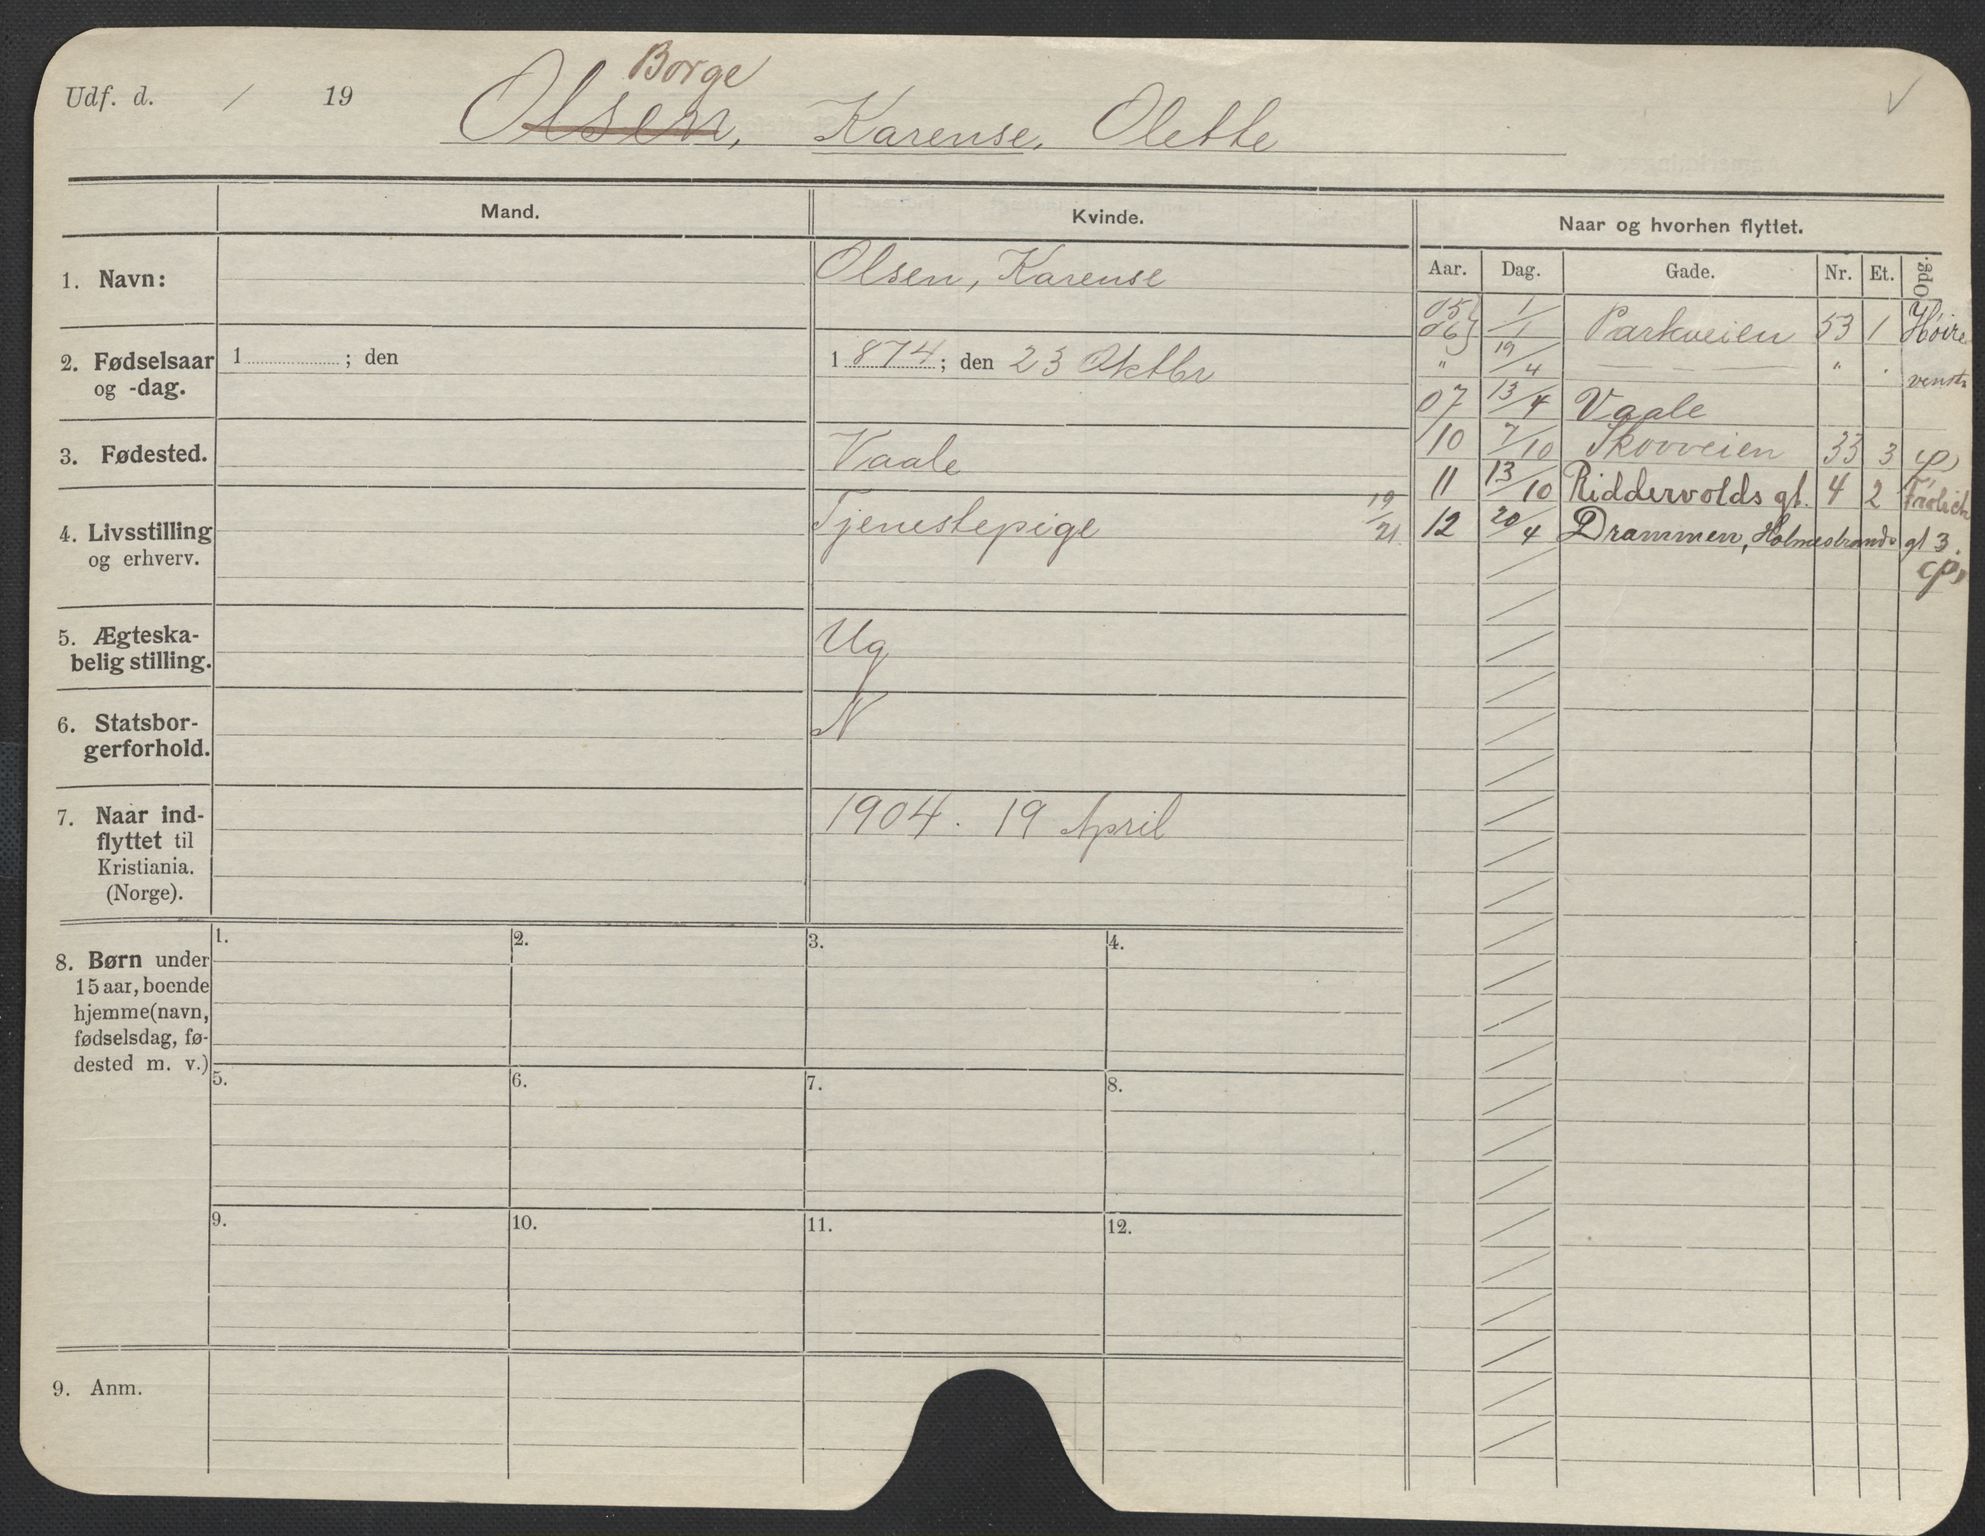 Borge
Udf. d. / 19 Olsen, Karense, Olette
Mand.
Kvinde.
Naar og hvorhen flyttet.
Aar. Dag. Gade. Nr. Et. Opg.
1. Navn:
Olsen, Karense
2. Fødselsaar
og -dag.
1 ; den
1 874 ; den 23 Oktbr
3. Fødested.
Vaale
4. Livsstilling
og erhverv.
Tjenestepige 19/21.
5. Ægteska-
belig stilling.
Ug
6. Statsbor-
gerforhold.
N
7. Naar ind-
flyttet til
Kristiania.
(Norge).
1904. 19 April
05
06 1/1 Parkveien 53 1 Høire
" 19/4 — — — " . venstr
07 13/4 Vaale
10 7/10 Skovveien 33 3
11 13/10 Riddervolds gt. 4 2
12 20/4 Drammen, Holmestrands gt 3.
8. Børn under
15 aar, boende
hjemme (navn,
fødselsdag, fø-
dested m. v.)
1. 2. 3. 4.
5. 6. 7. 8.
9. 10. 11. 12.
9. Anm.